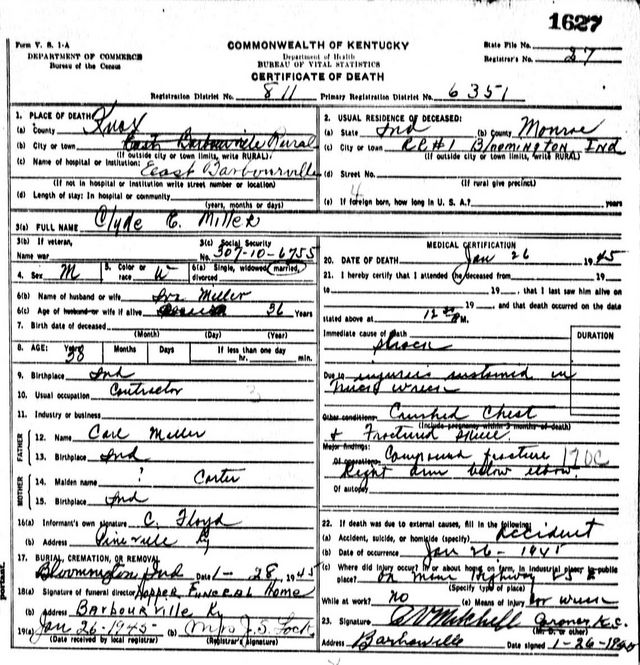 1627
Form V. S. 1-A
COMMONWEALTH OF KENTUCKY
State File No.
DEPARTMENT OF COMMERCE
Department of Health
Registrar's No. 27
Bureau of the Census
BUREAU OF VITAL STATISTICS
CERTIFICATE OF DEATH
Registration District No. 811 Primary Registration District No. 6351
1. PLACE OF DEATH
(a) County Knox
(b) City or town East Barbourville Rural
(If outside city or town limits, write RURAL)
(c) Name of hospital or institution: East Barbourville
(If not in hospital or institution write street number or location)
(d) Length of stay: In hospital or community
(years, months or days)
2. USUAL RESIDENCE OF DECEASED:
(a) State Ind (b) County Monroe
(c) City or town R.R.#1 Bloomington Ind
(If outside city or town limits, write RURAL)
(d) Street No.
(If rural give precinct)
(e) If foreign born, how long in U. S. A.? years
3(a) FULL NAME Clyde C. Miller
3(b) If veteran, Name war
3(c) Social Security No. 307-10-6755
4. Sex M 5. Color or race W 6(a) Single, widowed, married, divorced
6(b) Name of husband or wife Miller
6(c) Age of husband or wife if alive 36 Years
7. Birth date of deceased
(Month) (Day) (Year)
8. AGE: Years 38 Months Days If less than one day hr. min.
9. Birthplace Ind
10. Usual occupation Contractor
11. Industry or business
FATHER
12. Name Carl Miller
13. Birthplace Ind
MOTHER
14. Maiden name ? Carter
15. Birthplace Ind
16(a) Informant's own signature C. Floyd
(b) Address Pineville Ky
17. BURIAL, CREMATION, OR REMOVAL
Bloomington Ind Date 1-28, 1945
18(a) Signature of funeral director Hopper Funeral Home
(b) Address Barbourville Ky
19(a) Jan 26-1945 (b) Mrs J.S. Lock
(Date received by local registrar) (Registrar's signature)
MEDICAL CERTIFICATION
20. DATE OF DEATH Jan 26 1945
21. I hereby certify that I attended the deceased from 19
to 19 , that I last saw him alive on
19 , and that death occurred on the date
stated above at 12 M.
Immediate cause of death DURATION
Shock
Due to injuries sustained in
Truck wreck
Other conditions Crushed Chest
(Include pregnancy within 3 months of death)
& Fractured skull
Major findings:
Of operations Compound fracture 170C
Right arm below elbow
Of autopsy
22. If death was due to external causes, fill in the following:
(a) Accident, suicide, or homicide (specify) Accident
(b) Date of occurrence Jan 26-1945
(c) Where did injury occur? In or about home, on farm, in industrial place, in public place? on main Highway
(Specify type of place)
While at work? No (e) Means of injury wreck
23. Signature Mitchell Coroner K.C.
(M. D. or other)
Address Barbourville Date signed 1-26-1945
portant.